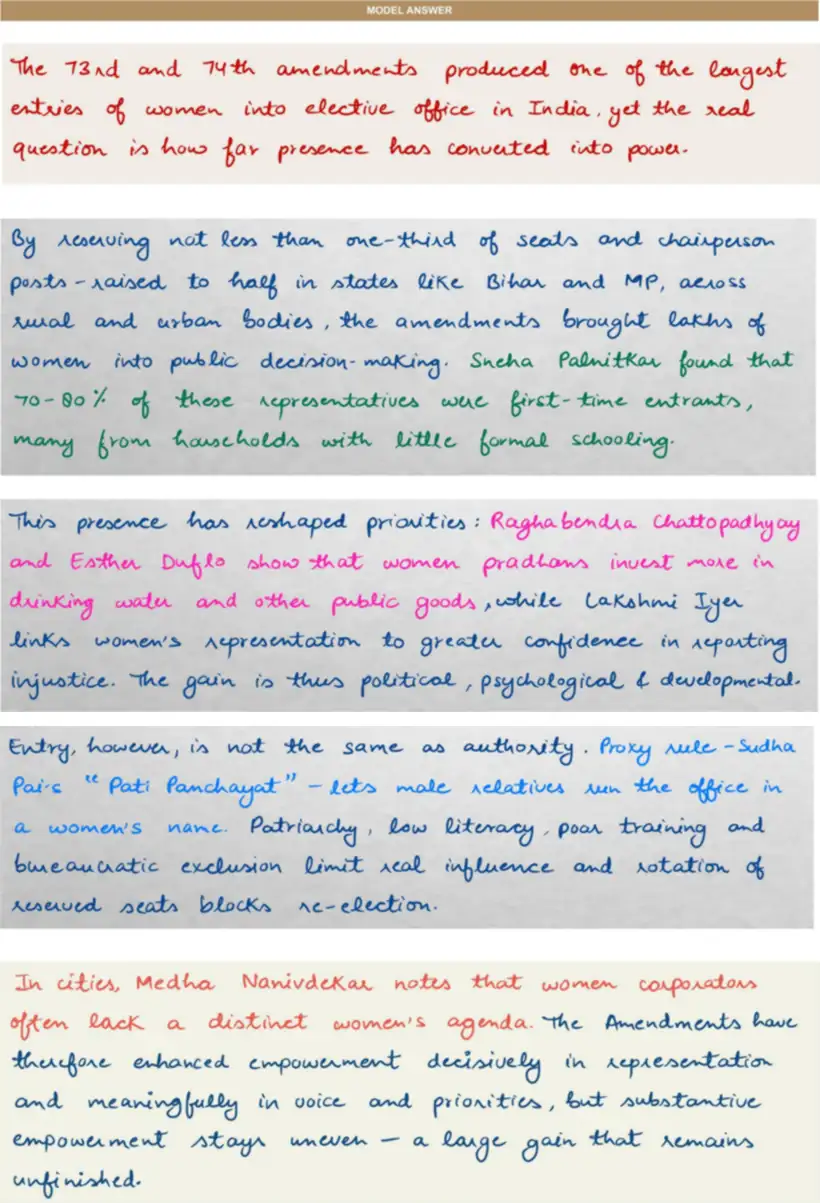 MODEL ANSWER
The 73rd and 74th amendments produced one of the largest
entries of women into elective office in India, yet the real
question is how far presence has converted into power.
By reserving not less than one-third of seats and chairperson
posts - raised to half in states like Bihar and MP, across
rural and urban bodies, the amendments brought lakhs of
women into public decision-making. Sneha Palnitkar found that
70-80% of these representatives were first-time entrants,
many from households with little formal schooling.
This presence has reshaped priorities: Raghabendra Chattopadhyay
and Esther Duflo show that women pradhans invest more in
drinking water and other public goods, while Lakshmi Iyer
links women's representation to greater confidence in reporting
injustice. The gain is thus political, psychological & developmental.
Entry, however, is not the same as authority. Proxy rule - Sudha
Pai's "Pati Panchayat" - lets male relatives run the office in
a women's name. Patriarchy, low literacy, poor training and
bureaucratic exclusion limit real influence and rotation of
reserved seats blocks re-election.
In cities, Medha Nanivdekar notes that women corporators
often lack a distinct women's agenda. The Amendments have
therefore enhanced empowerment decisively in representation
and meaningfully in voice and priorities, but substantive
empowerment stays uneven - a large gain that remains
unfinished.